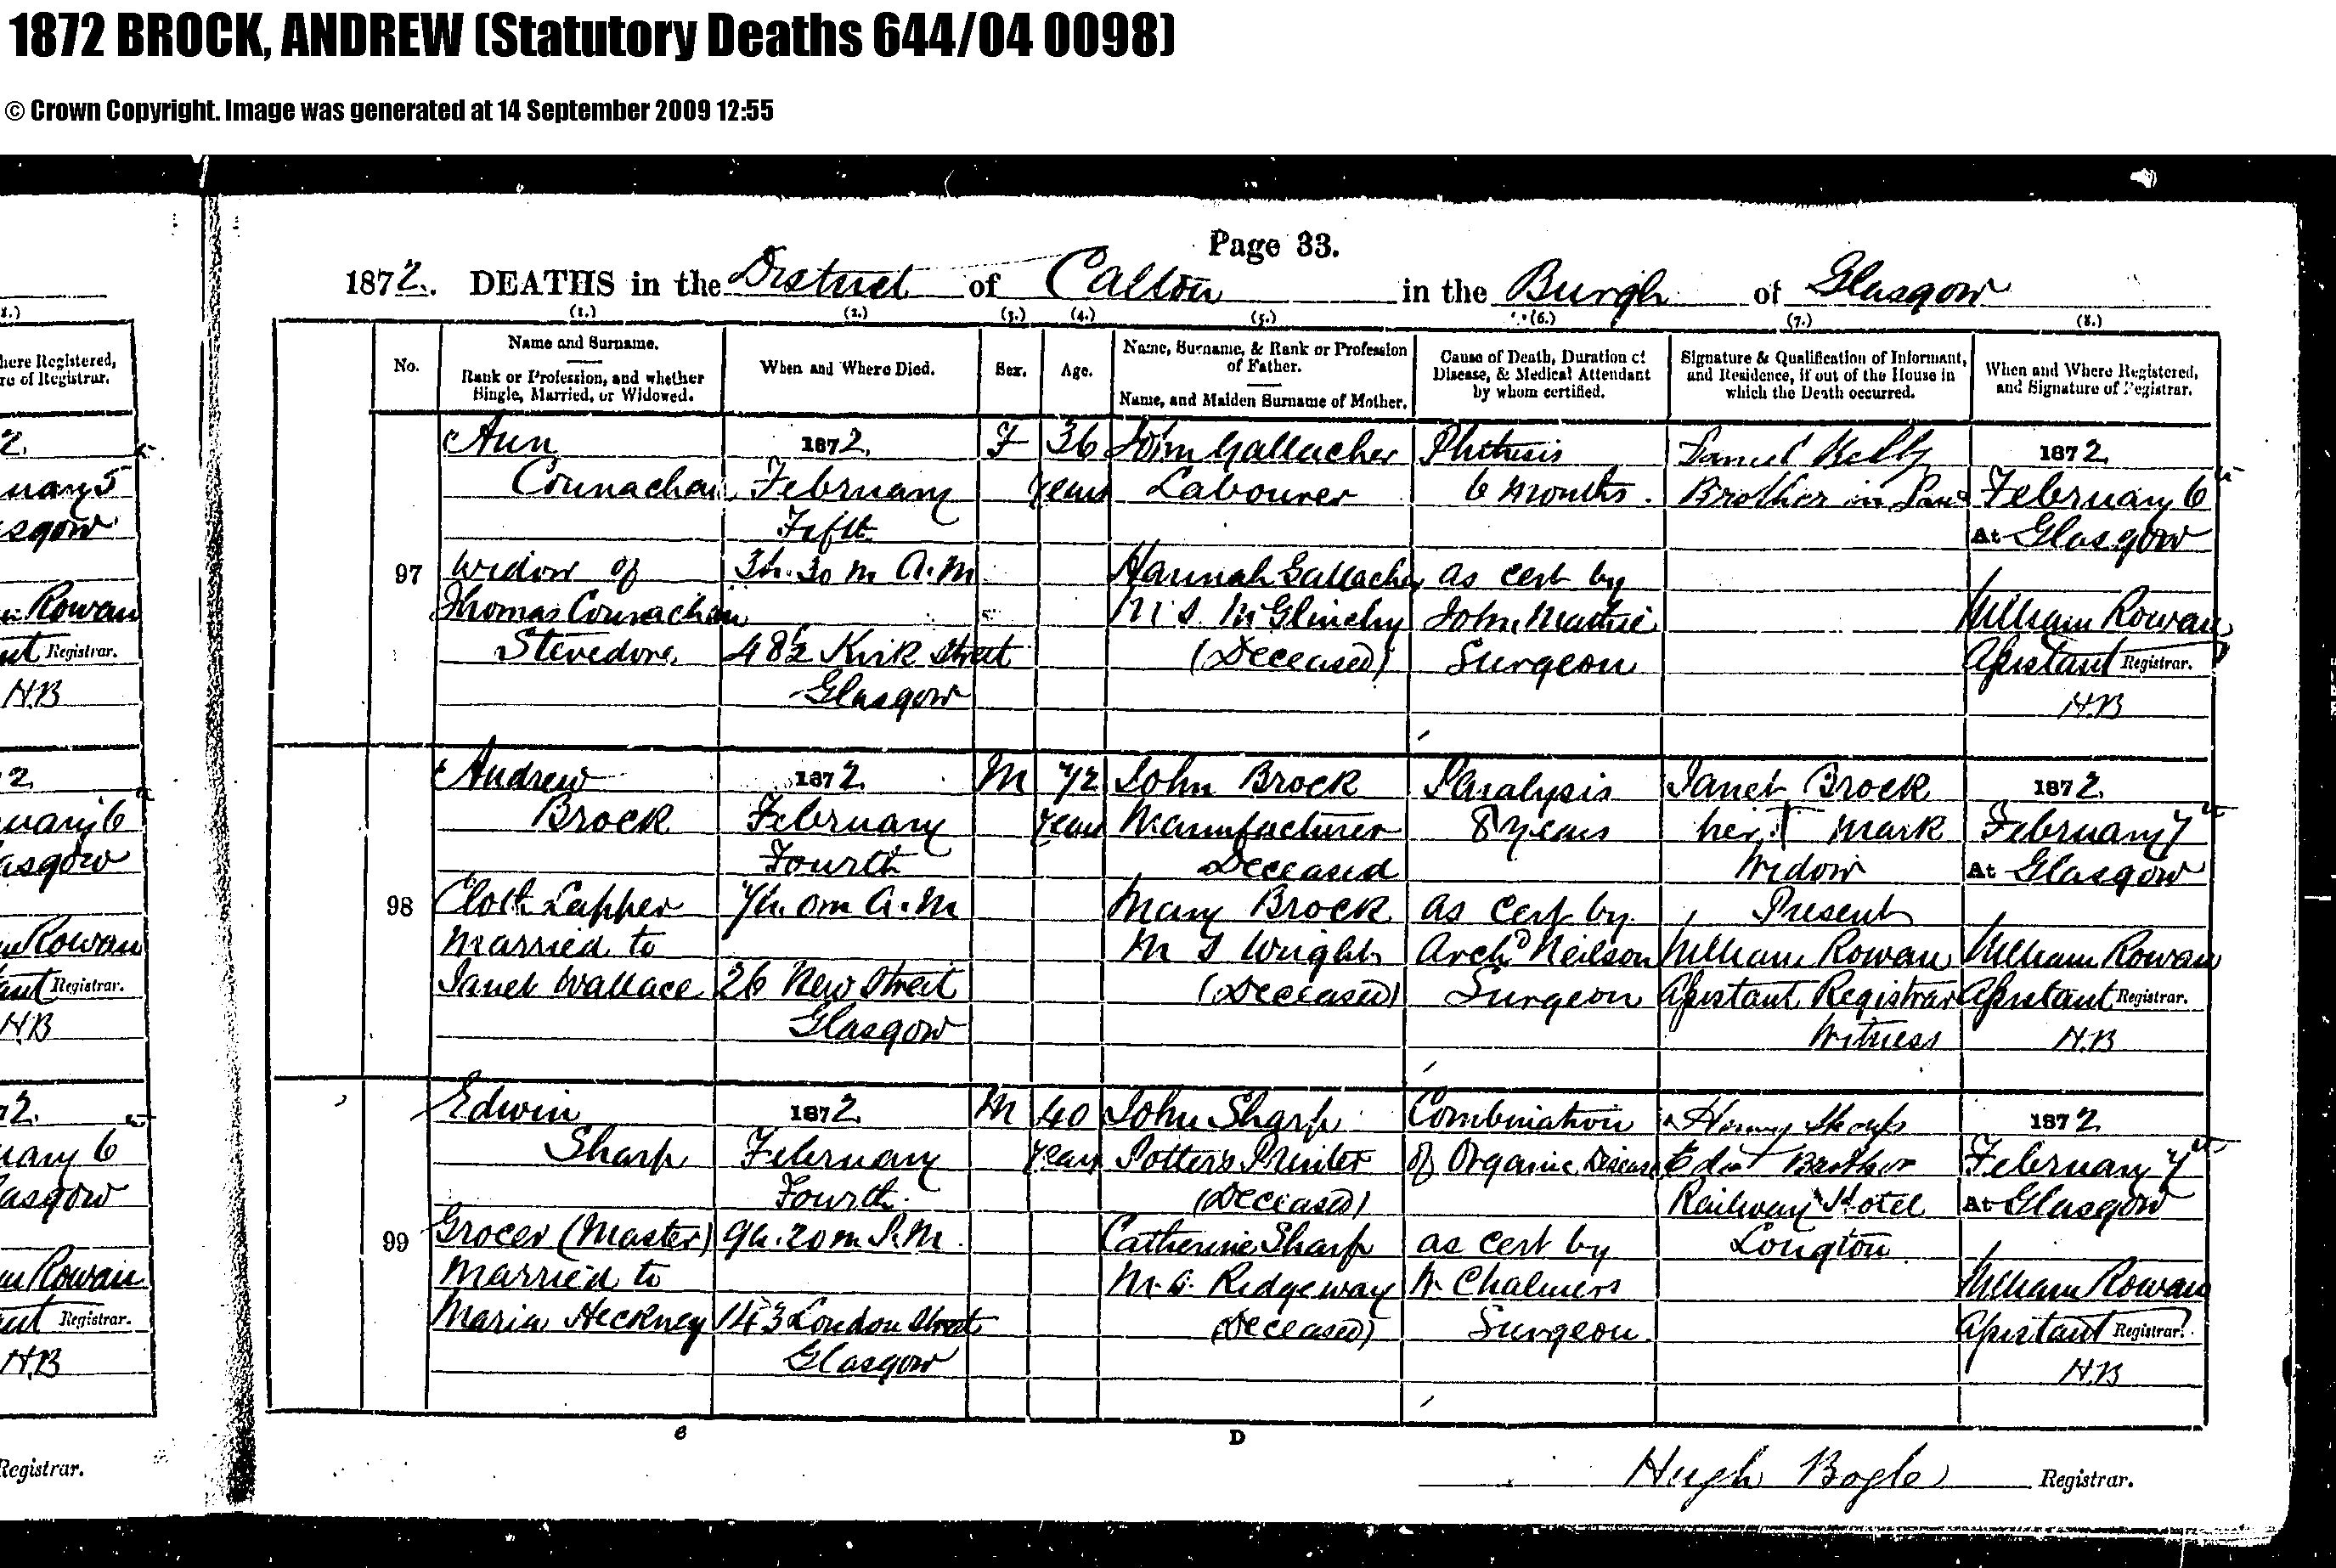 1872 BROCK, ANDREW (Statutory Deaths 644/04 0098)
© Crown Copyright. Image was generated at 14 September 2009 12:55
Page 33.
1872. DEATHS in the District of Calton in the Burgh of Glasgow
(1.) (2.) (3.) (4.) (5.) (6.) (7.) (8.)
No.
Name and Surname.
Rank or Profession, and whether
Single, Married, or Widowed.
When and Where Died.
Sex.
Age.
Name, Surname, & Rank or Profession
of Father.
Name, and Maiden Surname of Mother.
Cause of Death, Duration of
Disease, & Medical Attendant
by whom certified.
Signature & Qualification of Informant,
and Residence, if out of the House in
which the Death occurred.
When and Where Registered,
and Signature of Registrar.
97
Ann
Connachan
Widow of
Thomas Connachan
Stevedore
1872
February
Fifth
3h. 30 m A.M
48½ Kirk Street
Glasgow
F
36
years
John Gallacher
Labourer
Hannah Gallacher
M.S. McGlinchy
(Deceased)
Phthisis
6 months.
as cert by
John Mathie
Surgeon
Daniel Kelly
Brother in Law
1872
February 6th
At Glasgow
William Rowan
Assistant Registrar.
H.B
98
Andrew
Brock
Cloth Lapper
Married to
Janet Wallace
1872
February
Fourth
7h. 0m A.M
26 New Street
Glasgow
M
72
years
John Brock
Manufacturer
Deceased
Mary Brock
M S Wright
(Deceased)
Paralysis
8 years
as cert by
Archd Neilson
Surgeon
Janet Brock
her mark
Widow
Present
William Rowan
Assistant Registrar
Witness
1872
February 7th
At Glasgow
William Rowan
Assistant Registrar.
H.B
99
Edwin
Sharp
Grocer (Master)
Married to
Maria Heckney
1872
February
Fourth
9h. 20m P.M.
143 London Street
Glasgow
M
40
years
John Sharp
Potter's Printer
(Deceased)
Catherine Sharp
M.S. Ridgeway
(Deceased)
Combination
of Organic Disease
as cert by
W Chalmers
Surgeon
Henry Sharp
Brother
Railway Hotel
Longton
1872
February 7th
At Glasgow
William Rowan
Assistant Registrar.
H.B
C D
Hugh Bogle Registrar.